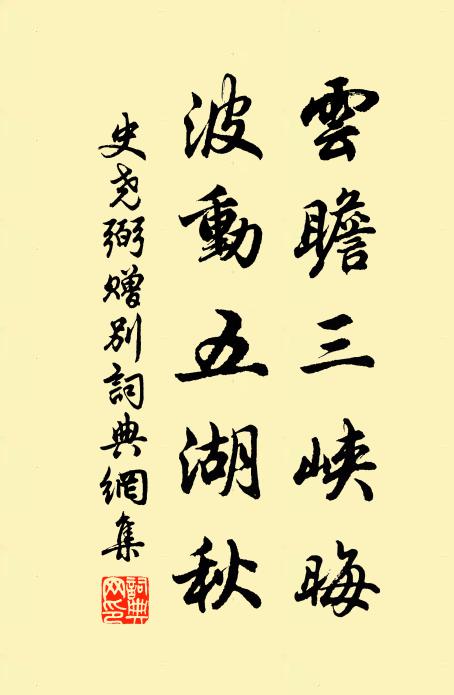 雲瞻三峽晦
波動五湖秋
史堯弼贈別詞典網集
詞典網印